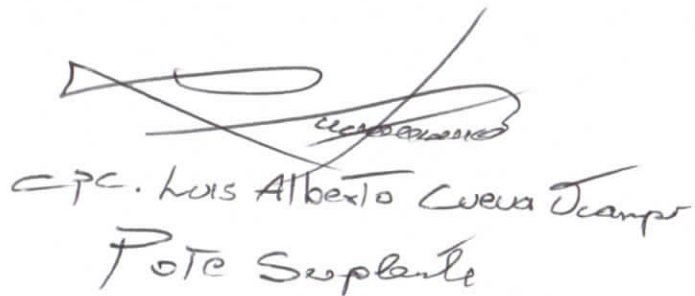 CPC. Luis Alberto Cueva Ocampo
Pdte Suplente